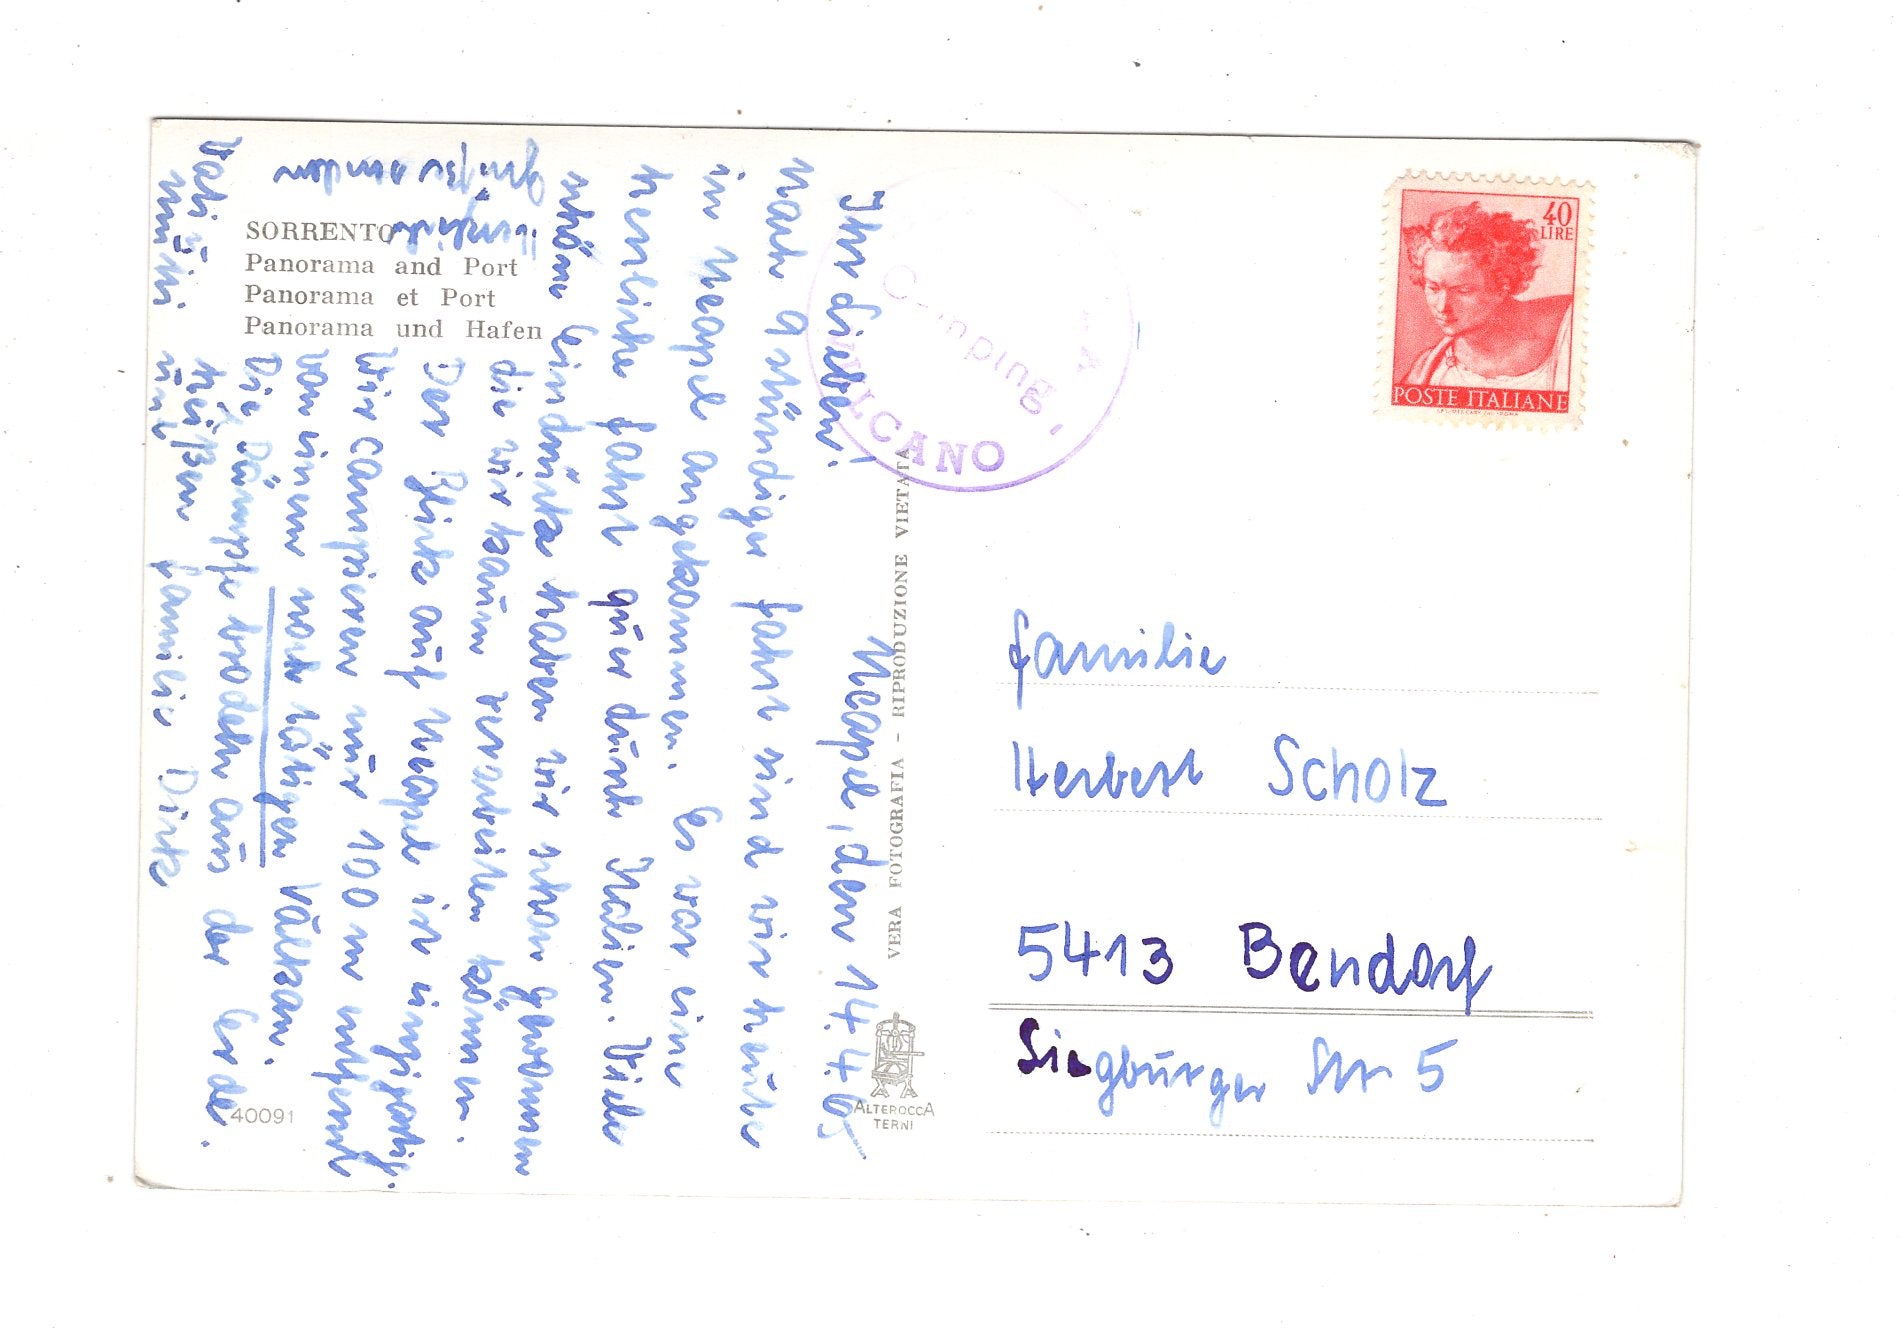 SORRENTO
Panorama and Port
Panorama et Port
Panorama und Hafen
Neapel, den 14.4.65
Ihr Lieben!
Nach 9 stündiger Fahrt sind wir heute
in Neapel angekommen. Es war eine
herrliche Fahrt quer durch Italien. Viele
schöne Eindrücke haben wir schon gewonnen
die wir kaum verarbeiten können.
Der Blick auf Neapel ist einzigartig.
Wir campieren nur 100 m entfernt
von einem noch tätigen Vulkan.
Die Dämpfe brodeln aus der Erde.
Herzliche
Grüße senden
Vati
Mutti und
Familie Dirk
40091
VERA FOTOGRAFIA - RIPRODUZIONE VIETATA
ALTEROCCA
TERNI
Camping
VULCANO
40
LIRE
POSTE ITALIANE
Familie
Herbert Scholz
5413 Bendorf
Siegburger Str 5